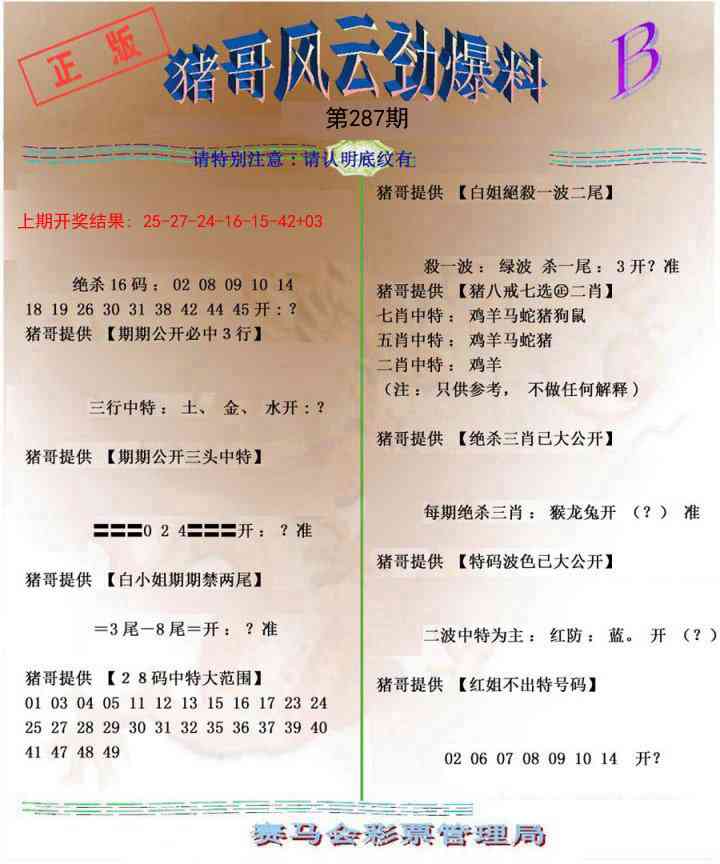 正版
猪哥风云劲爆料
B
第287期
请特别注意：请认明底纹有
上期开奖结果: 25-27-24-16-15-42+03
绝杀16码：02 08 09 10 14
18 19 26 30 31 38 42 44 45开:？
猪哥提供 【期期公开必中3行】
三行中特：土、 金、 水开:？
猪哥提供 【期期公开三头中特】
〓〓〓0 2 4〓〓〓开：？准
猪哥提供 【白小姐期期禁两尾】
＝3尾－8尾＝开：？准
猪哥提供 【28码中特大范围】
01 03 04 05 11 12 13 15 16 17 23 24
25 27 28 29 30 31 32 35 36 37 39 40
41 47 48 49
猪哥提供 【白姐絕殺一波二尾】
殺一波：绿波 杀一尾：3开？准
猪哥提供 【猪八戒七选㊣二肖】
七肖中特：鸡羊马蛇猪狗鼠
五肖中特：鸡羊马蛇猪
二肖中特：鸡羊
（注：只供参考， 不做任何解释）
猪哥提供 【绝杀三肖已大公开】
每期绝杀三肖：猴龙兔开 （？） 准
猪哥提供 【特码波色已大公开】
二波中特为主：红防：蓝。 开 （？）
猪哥提供 【红姐不出特号码】
02 06 07 08 09 10 14 开？
赛马会彩票管理局